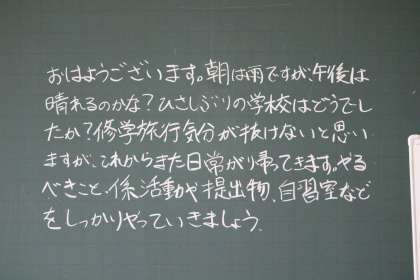 おはようございます。朝は雨ですが、午後は
晴れるのかな？ひさしぶりの学校はどうでし
たか？修学旅行気分が抜けないと思い
ますが、これからまた日常がり帰ってきます。やる
べきこと、係活動や提出物、自習室などを
しっかりやっていきましょう。